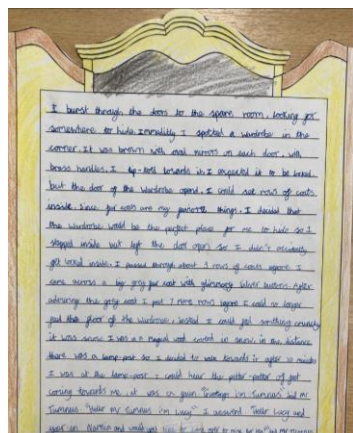 I burst through the doors to the spare room, looking for
somewhere to hide. Immditly I spotted a wardrobe in the
corner. It was brown with oval mirrors on each door, with
brass handles. I tip-toed towards it. I expected it to be locked
but the door of the wardrobe opend. I could see rows of coats
inside. Since fur coats are my favorite things, I decided that
the wardrobe would be the perfect place for me to hide so I
stepped inside but left the door open so I didn't
get locked inside. I passed through about 3 rows of coats before I
came across a big grey fur coat with silver buttons. After
admiring the grey coat I past 7 more rows before I could no longer
feel the floor of the wardrobe, insted I could feel something crunchy
it was snow. I was in a magical wood coverd in snow. in the distance
there was a lamp-post so I decided to walk towards it after 10 minutes
I was at the lamp-post. I could hear the pitter-patter of feet
coming towards me. it was a faun "Greetings I'm Tumnus" said mr
Tumnus. "Hello mr tumnus i'm Lucy" I answerd. "Hello Lucy and
your in Narnia and would you like to come over to mine for tea" said mr tumnus